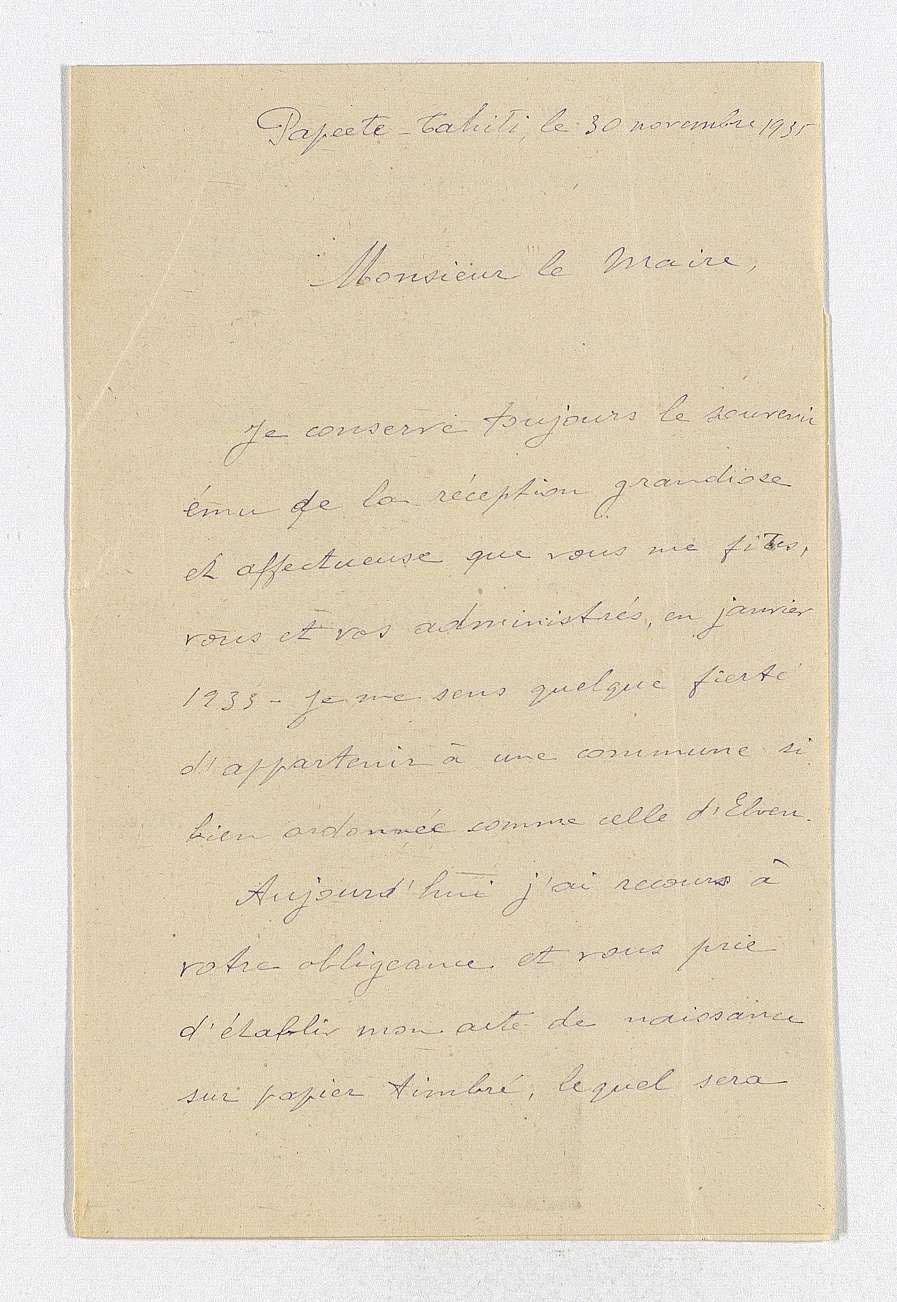 Papeete - Tahiti, le 30 novembre 1935
Monsieur le Maire,
Je conserve toujours le souvenir
ému de la réception grandiose
et affectueuse que vous me fîtes,
vous et vos administrés, en janvier
1933 - Je me sens quelque fierté
d'appartenir à une commune si
bien ordonnée comme celle d'Elven.
Aujourd'hui j'ai recours à
votre obligeance et vous prie
d'établir mon acte de naissance
sur papier timbré, lequel sera